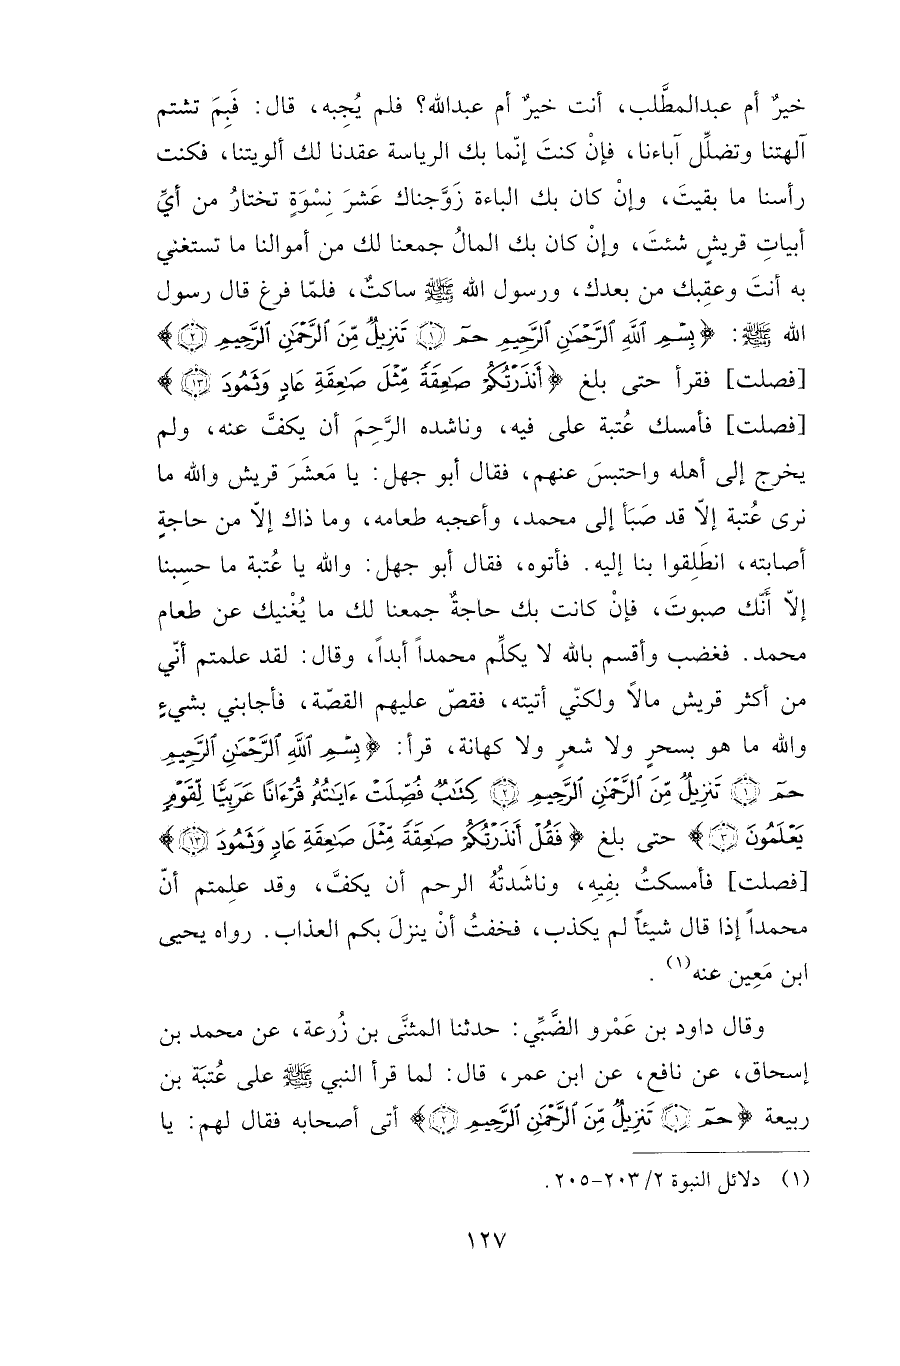 خيرٌ أم عبدالمطَّلب، أنت خيرٌ أم عبدالله؟ فلم يُجِبه، قال: فَبِمَ تشتم
آلهتنا وتضلِّل آباءنا، فإنْ كنتَ إنّما بك الرياسة عقدنا لك ألويتنا، فكنت
رأسنا ما بقيتَ، وإنْ كان بك الباءة زَوَّجناك عَشرَ نِسْوَةٍ تختارُ من أيِّ
أبياتِ قريشٍ شئتَ، وإنْ كان بك المالُ جمعنا لك من أموالنا ما تستغني
به أنتَ وعقِبك من بعدك، ورسول الله ﷺ ساكتٌ، فلمّا فرغ قال رسول
الله ﷺ: ﴿بِسْمِ ٱللَّهِ ٱلرَّحْمَٰنِ ٱلرَّحِيمِ حمٓ ۝١ تَنزِيلٌ مِّنَ ٱلرَّحْمَٰنِ ٱلرَّحِيمِ ۝٢﴾
[فصلت] فقرأ حتى بلغ ﴿أَنذَرْتُكُمْ صَٰعِقَةً مِّثْلَ صَٰعِقَةِ عَادٍ وَثَمُودَ ۝١٣﴾
[فصلت] فأمسك عُتبة على فيه، وناشده الرَّحِمَ أن يكفَّ عنه، ولم
يخرج إلى أهله واحتبسَ عنهم، فقال أبو جهل: يا مَعشَرَ قريش والله ما
نرى عُتبة إلاّ قد صَبَأ إلى محمد، وأعجبه طعامه، وما ذاك إلاّ من حاجةٍ
أصابته، انطَلِقوا بنا إليه. فأتوه، فقال أبو جهل: والله يا عُتبة ما حسِبنا
إلاّ أَنّك صبوتَ، فإنْ كانت بك حاجةٌ جمعنا لك ما يُغْنيك عن طعام
محمد. فغضب وأقسم بالله لا يكلِّم محمداً أبداً، وقال: لقد علمتم أنّي
من أكثر قريش مالاً ولكنّي أتيته، فقصّ عليهم القصّة، فأجابني بشيءٍ
والله ما هو بسحرٍ ولا شعرٍ ولا كهانة، قرأ: ﴿بِسْمِ ٱللَّهِ ٱلرَّحْمَٰنِ ٱلرَّحِيمِ
حمٓ ۝١ تَنزِيلٌ مِّنَ ٱلرَّحْمَٰنِ ٱلرَّحِيمِ ۝٢ كِتَٰبٌ فُصِّلَتْ ءَايَٰتُهُۥ قُرْءَانًا عَرَبِيًّا لِّقَوْمٍ
يَعْلَمُونَ ۝٣﴾ حتى بلغ ﴿فَقُلْ أَنذَرْتُكُمْ صَٰعِقَةً مِّثْلَ صَٰعِقَةِ عَادٍ وَثَمُودَ ۝١٣﴾
[فصلت] فأمسكتُ بِفِيهِ، وناشَدتُهُ الرحم أن يكفَّ، وقد علِمتم أنّ
محمداً إذا قال شيئاً لم يكذب، فخفتُ أنْ ينزلَ بكم العذاب. رواه يحيى
ابن مَعِين عنه(١) .
وقال داود بن عَمْرو الضَّبِّي: حدثنا المثنَّى بن زُرعة، عن محمد بن
إسحاق، عن نافع، عن ابن عمر، قال: لما قرأ النبي ﷺ على عُتبَة بن
ربيعة ﴿حمٓ ۝١ تَنزِيلٌ مِّنَ ٱلرَّحْمَٰنِ ٱلرَّحِيمِ ۝٢﴾ أتى أصحابه فقال لهم: يا
(١) دلائل النبوة ٢/ ٢٠٣-٢٠٥.
١٢٧